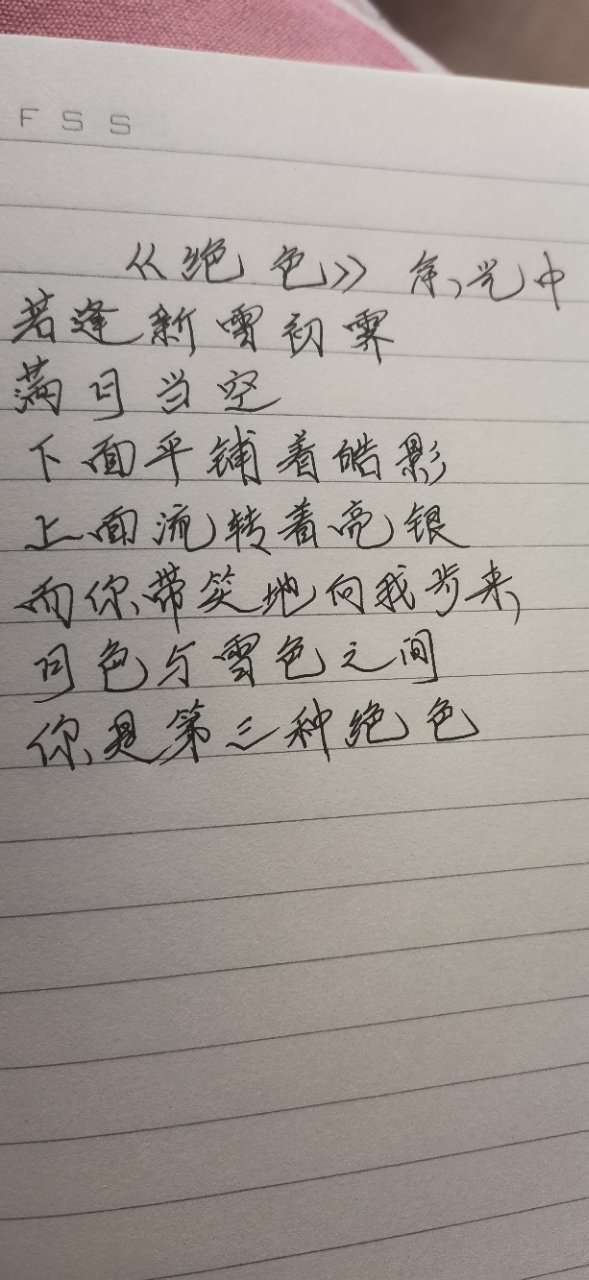 FSS
《绝色》 余光中
若逢新雪初霁
满月当空
下面平铺着皓影
上面流转着亮银
而你带笑地向我步来
月色与雪色之间
你是第三种绝色